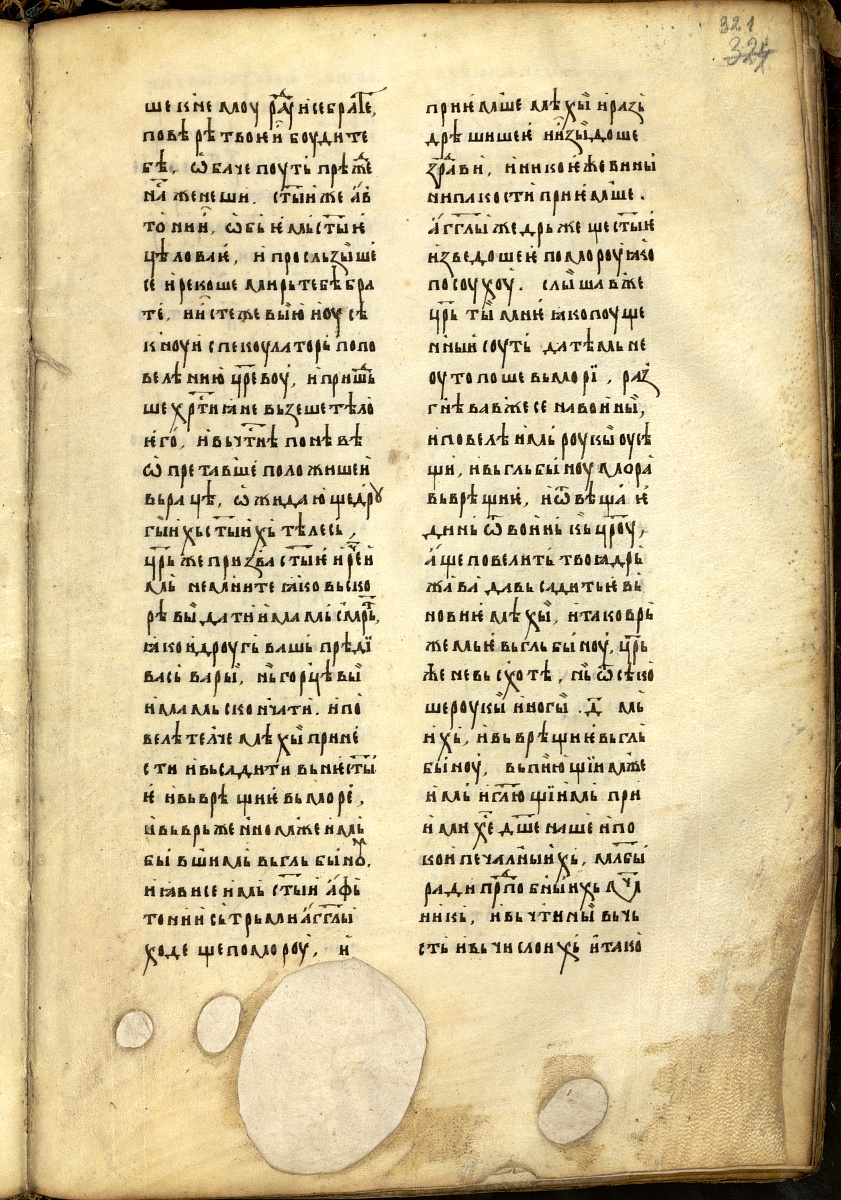 321
324
ше кь не моу раⷣуи се братⷭ҇е,
по вѣ рѣ твоѥи боуди те
бѣ, ѡ баче поуть прѣжⷣе
на же не ши. ст҃ыи же ав
то нии, ѡбь ѥмь ст҃ыѥ
цѣлова ѥ, и просльзыше
се и рекоше мирь тебѣ бра
те, и исте же выю ноу сѣ
кноу и спекоулаторь по по
велѣнию цр҃евоу, и приш҃ь
ше хр҃тиꙗне вьзеше тѣло
ѥго, и вь чⷭ҇тнѣ по нѣ вѣ
ѡ претавше положише и
вь рацѣ, ѡжидающе дрꙋ
гыихь ст҃ыихь тѣлесь,
цр҃ь же призва ст҃ыѥ и реⷱ҇ и
мь не мните ꙗко вьско
рѣ вы дати имамь см҃рть,
ꙗко и дроугь вашь прѣдї
вась вары, нь горцѣ вы
имамь скончати. и по
велѣ телче мѣхы прине
сти и вьсадити вь нѥ ст҃ы
ѥ и вьврѣщи ѥ вь море,
и вьврьженномже имь
бывшимь вь гльбынꙋ.
и ꙗви се имь ст҃ыи афь
тонии сь трьми агг҃лы
ходе ще по мороу, и
приѥмше мѣхы и разь
дрѣшише ѥ и изыдоше
здⷣрави, и никоѥ же вины
ни пакости приѥмше.
агг҃лы же дрьжеще ст҃ыѥ
изведоше ѥ по мороу ꙗко
по соухоу. слышав же
цр҃ь ты мнѥ ꙗко поуще
нныи соуть да тѣмь не
оутопоше вь морї, раз
гнѣвав же се на воины,
и повелѣ имь роукы оусѣ
щи, и вь гльбыноу мора
вьврѣщи ѥ, и ѿвѣща ѥ
динь ѿ воинь кь цр҃оу,
аще повелить твоꙗ дрь
жава да вьсадить ѥ вь
новиѥ мѣхы, и тако врь
жемь ѥ вь гльбыноу, цр҃ь
же не вьсхотѣ, нь ѿсѣко
ше роукы и ногы .д҃ мь
ихь, и вьврѣщи ѥ вь гль
быноу, вьпиющїимже
имь и гл҃ющїимь при
ими хе҃ дш҃е наше и по
кои печалныихь, мл҃бы
ради прⷣпобныихь мч҃
никь, и вьчти ны вь чь
сть и вь число ихь и тако